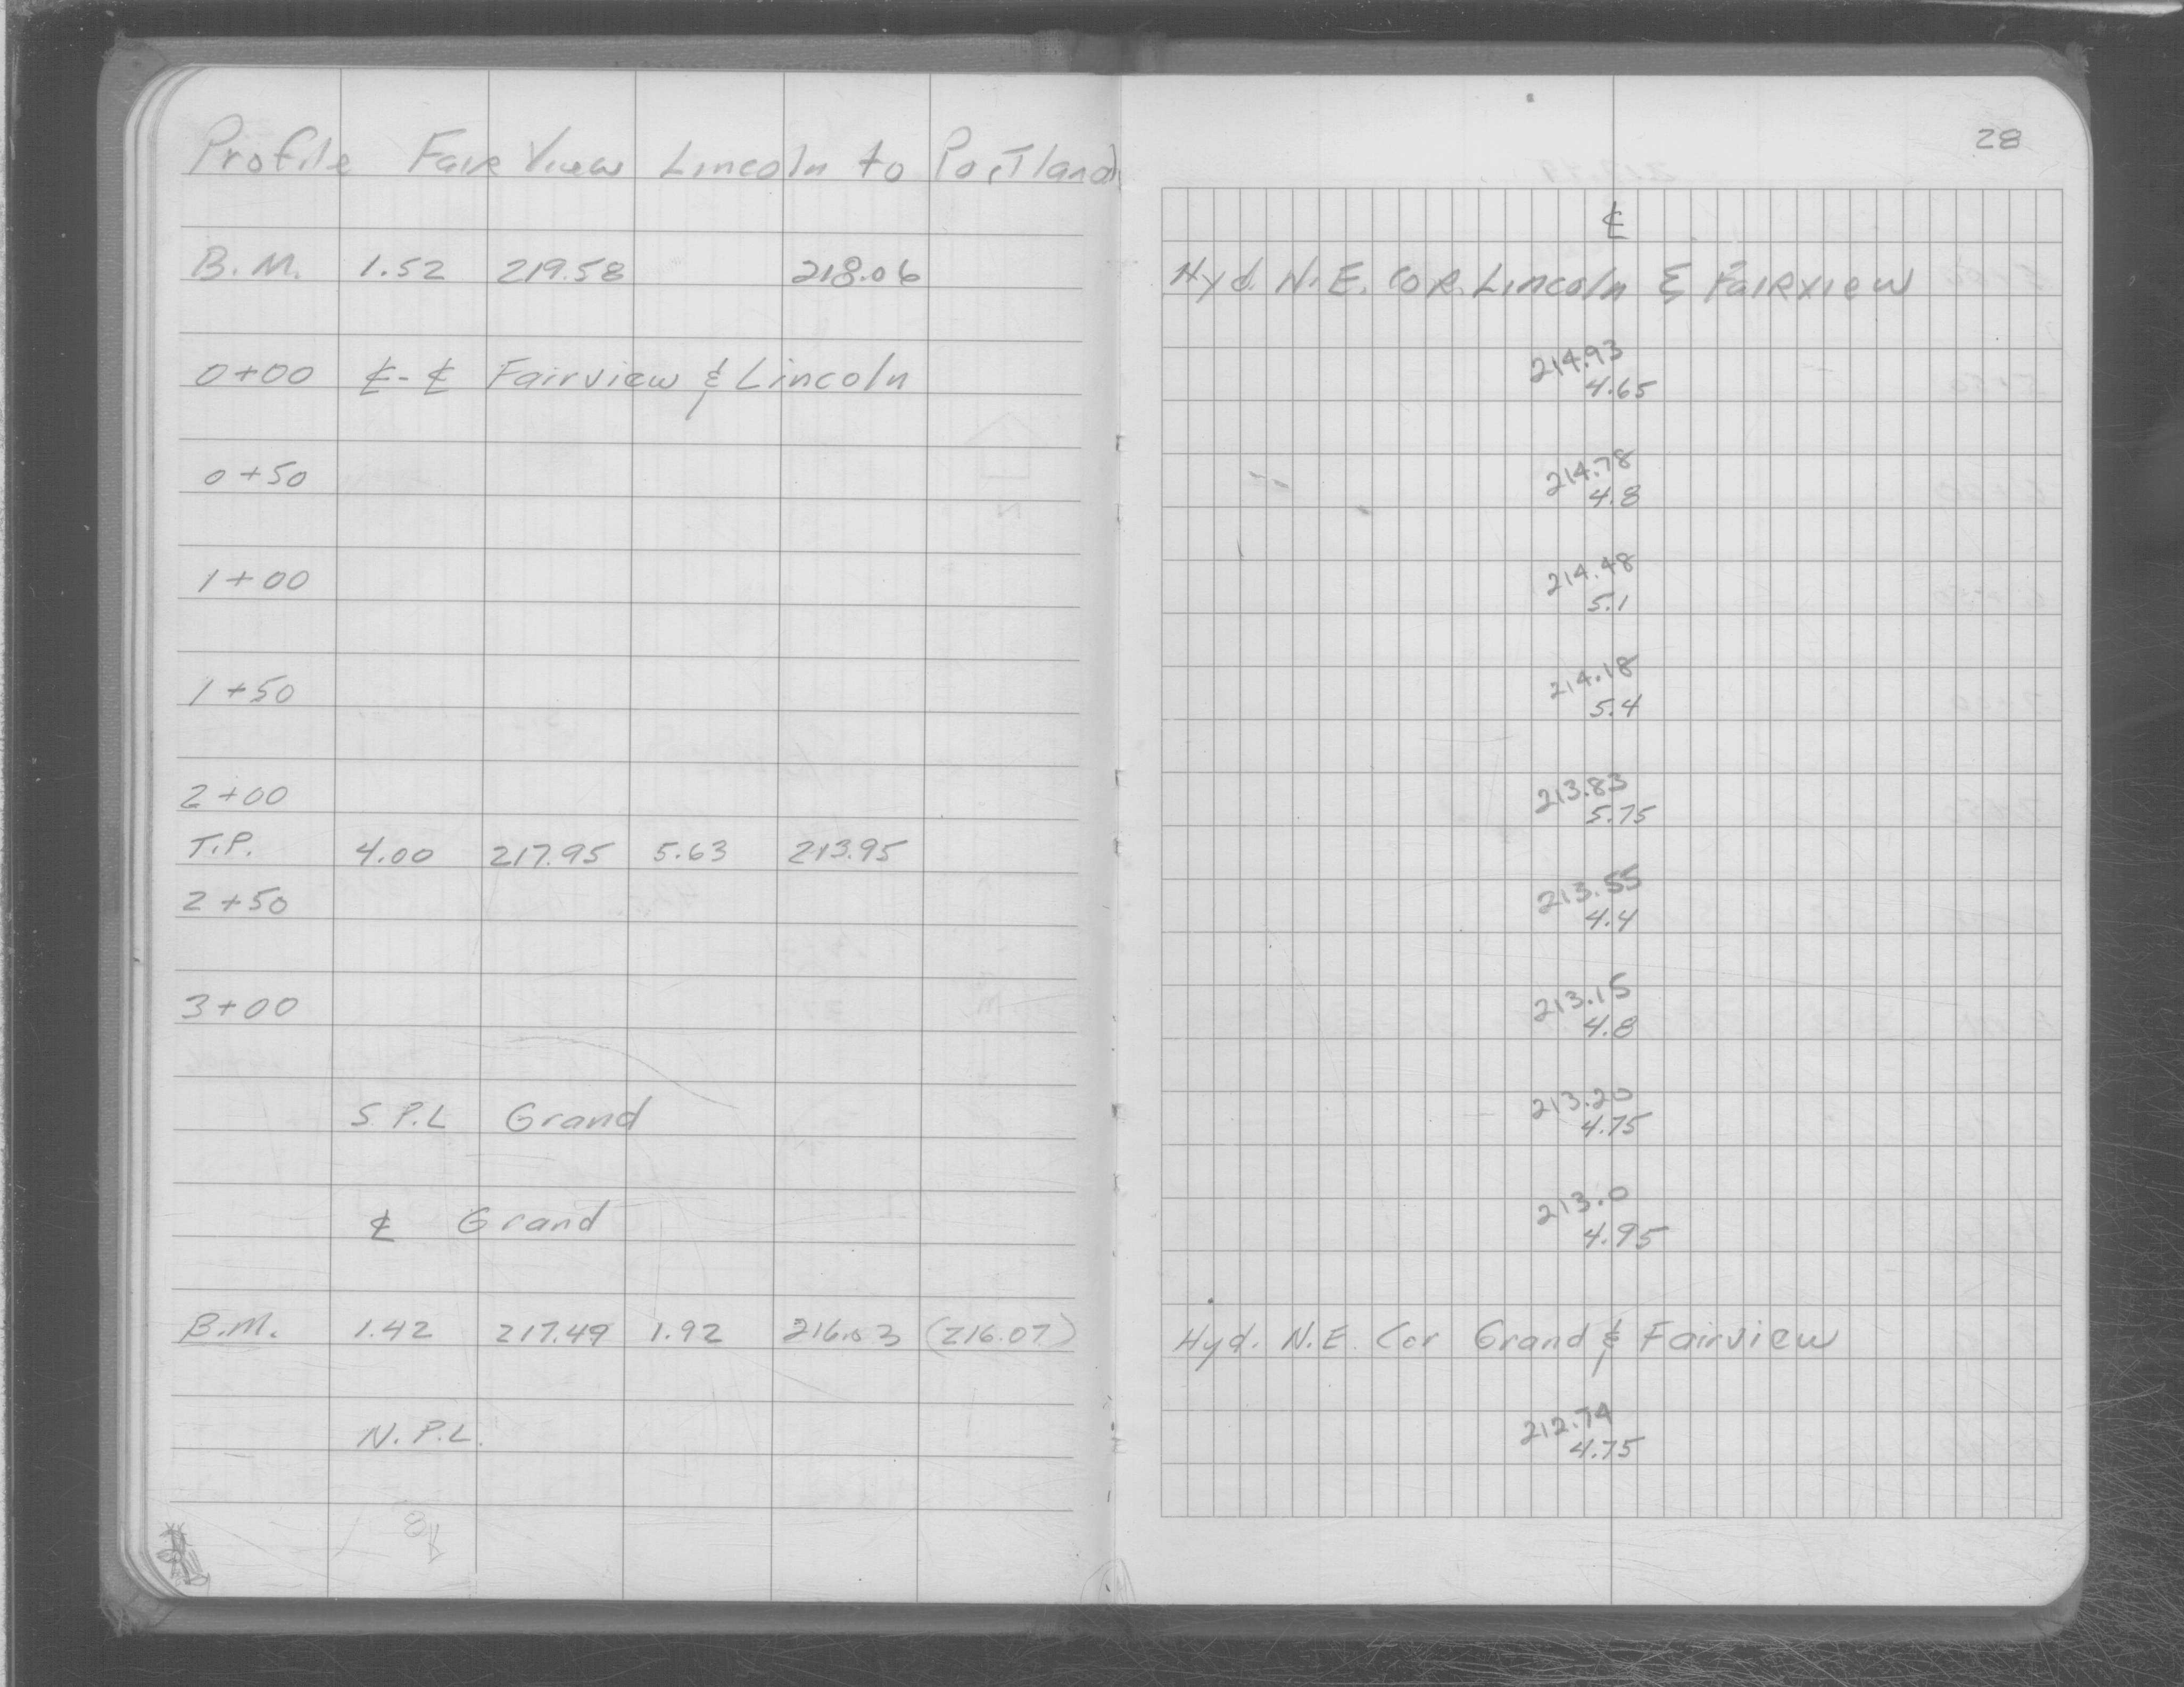 Profile Fair View Lincoln to Portland
B.M. 1.52 219.58 218.06
0+00 ℄-℄ Fairview & Lincoln
0+50
1+00
1+50
2+00
T.P. 4.00 217.95 5.63 213.95
2+50
3+00
S.P.L Grand
℄ Grand
B.M. 1.42 217.49 1.92 216.03 (216.07)
N.P.L.
28
℄
Hyd. N.E. Cor. Lincoln & Fairview
214.93
4.65
214.78
4.8
214.48
5.1
214.18
5.4
213.83
5.75
213.55
4.4
213.15
4.8
213.20
4.75
213.0
4.95
Hyd. N.E. Cor Grand & Fairview
212.74
4.75